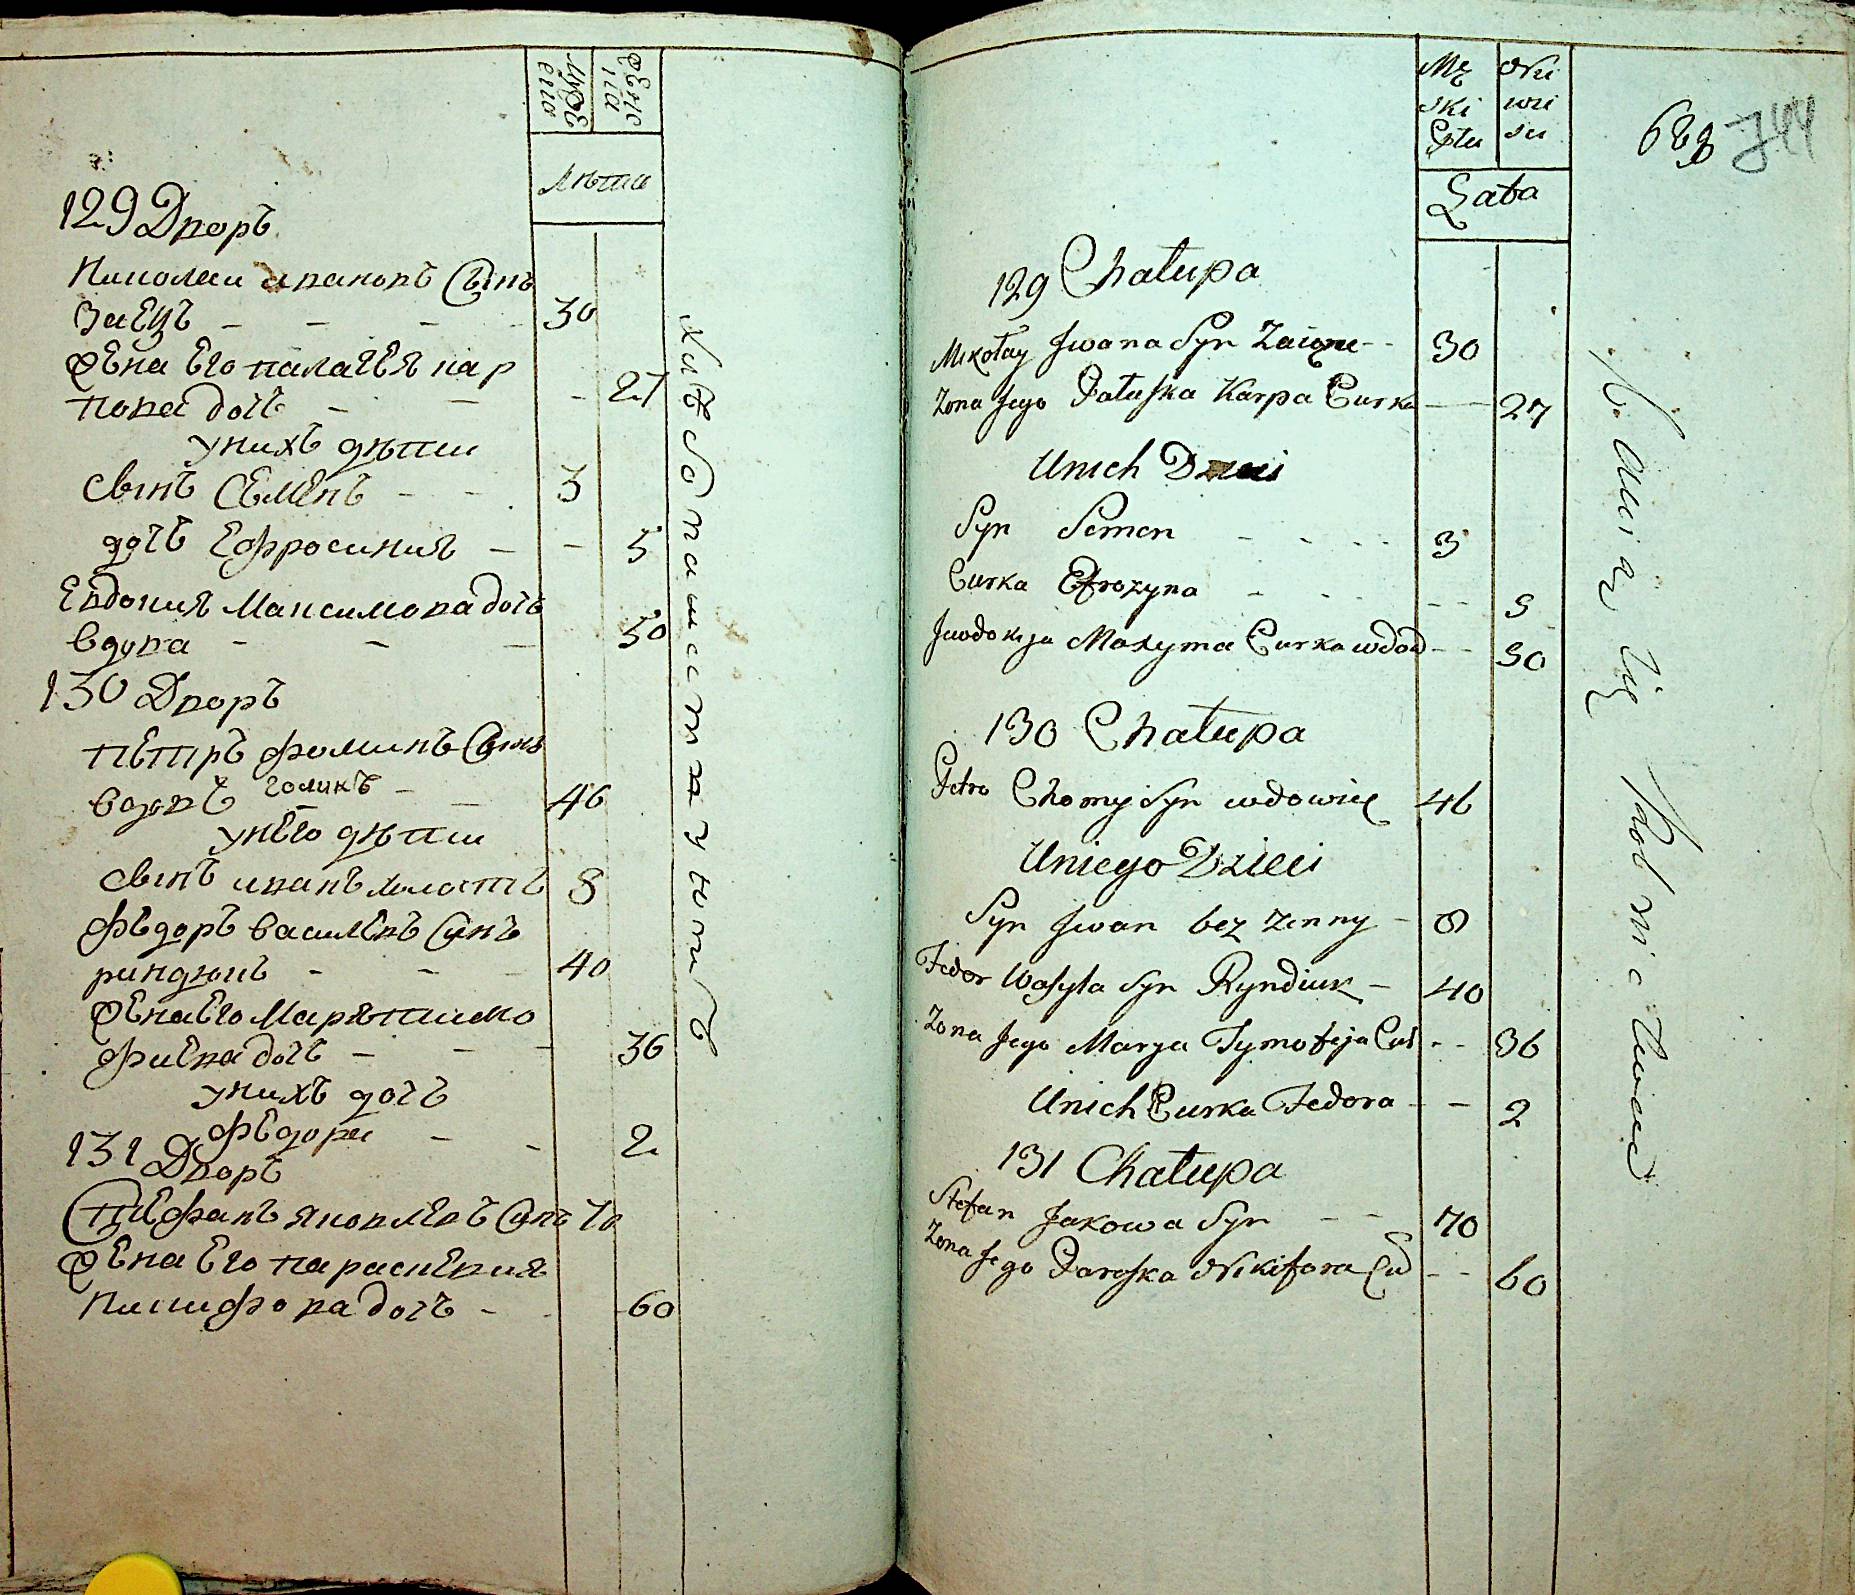 мужеска
женска
лѣта
129 Дворъ
Николаи ивановъ Сынъ
Заецъ - - - - 30
жена его палагея кар
пова дочь - - - 27
унихъ дѣти
сынъ Семенъ - - 3
дочь Ефросиния - - 5
Евдокия Максимова дочь
вдова - - - 50
130 Дворъ
петръ фоминъ Сынъ
вдовъ голикъ - - 46
унего дѣти
сынъ иванъ холостъ 8
Федоръ василевъ Сынъ
риндюкъ - - - 40
жена его Маря тимо
фиева дочь - - - 36
унихъ дочь
Федора - - 2
131 Дворъ
Стефанъ яковлевъ Сынъ 70
жена его параскевия
никифорова дочь - - 60
хлебопашествуютъ
Męskiey Płci
Niewieściey
Lata
744
129 Chałupa
Mikołay Jwana Syn Zaiąc - - 30
Zona Jego Pałaſka Karpa Curka - - 27
Unich Dzieci
Syn Semen - - - - 3
Curka Efrozyna - - - - - 5
Jewdokija Maxyma Curka wdow - - 50
130 Chałupa
Petro Chomy Syn wdowiec 46
Uniego Dzieci
Syn Jwan bez zenny - 8
Fedor Waſyla Syn Ryndiuk - 40
Zona Jego Marya Tymofeja Cur - - 36
Unich Curka Fedora - - 2
131 Chałupa
Stefan Jakowa Syn - - 70
Zona Jego Paraſka Nikifora Cur - - 60
Bawią się Rolnictwem